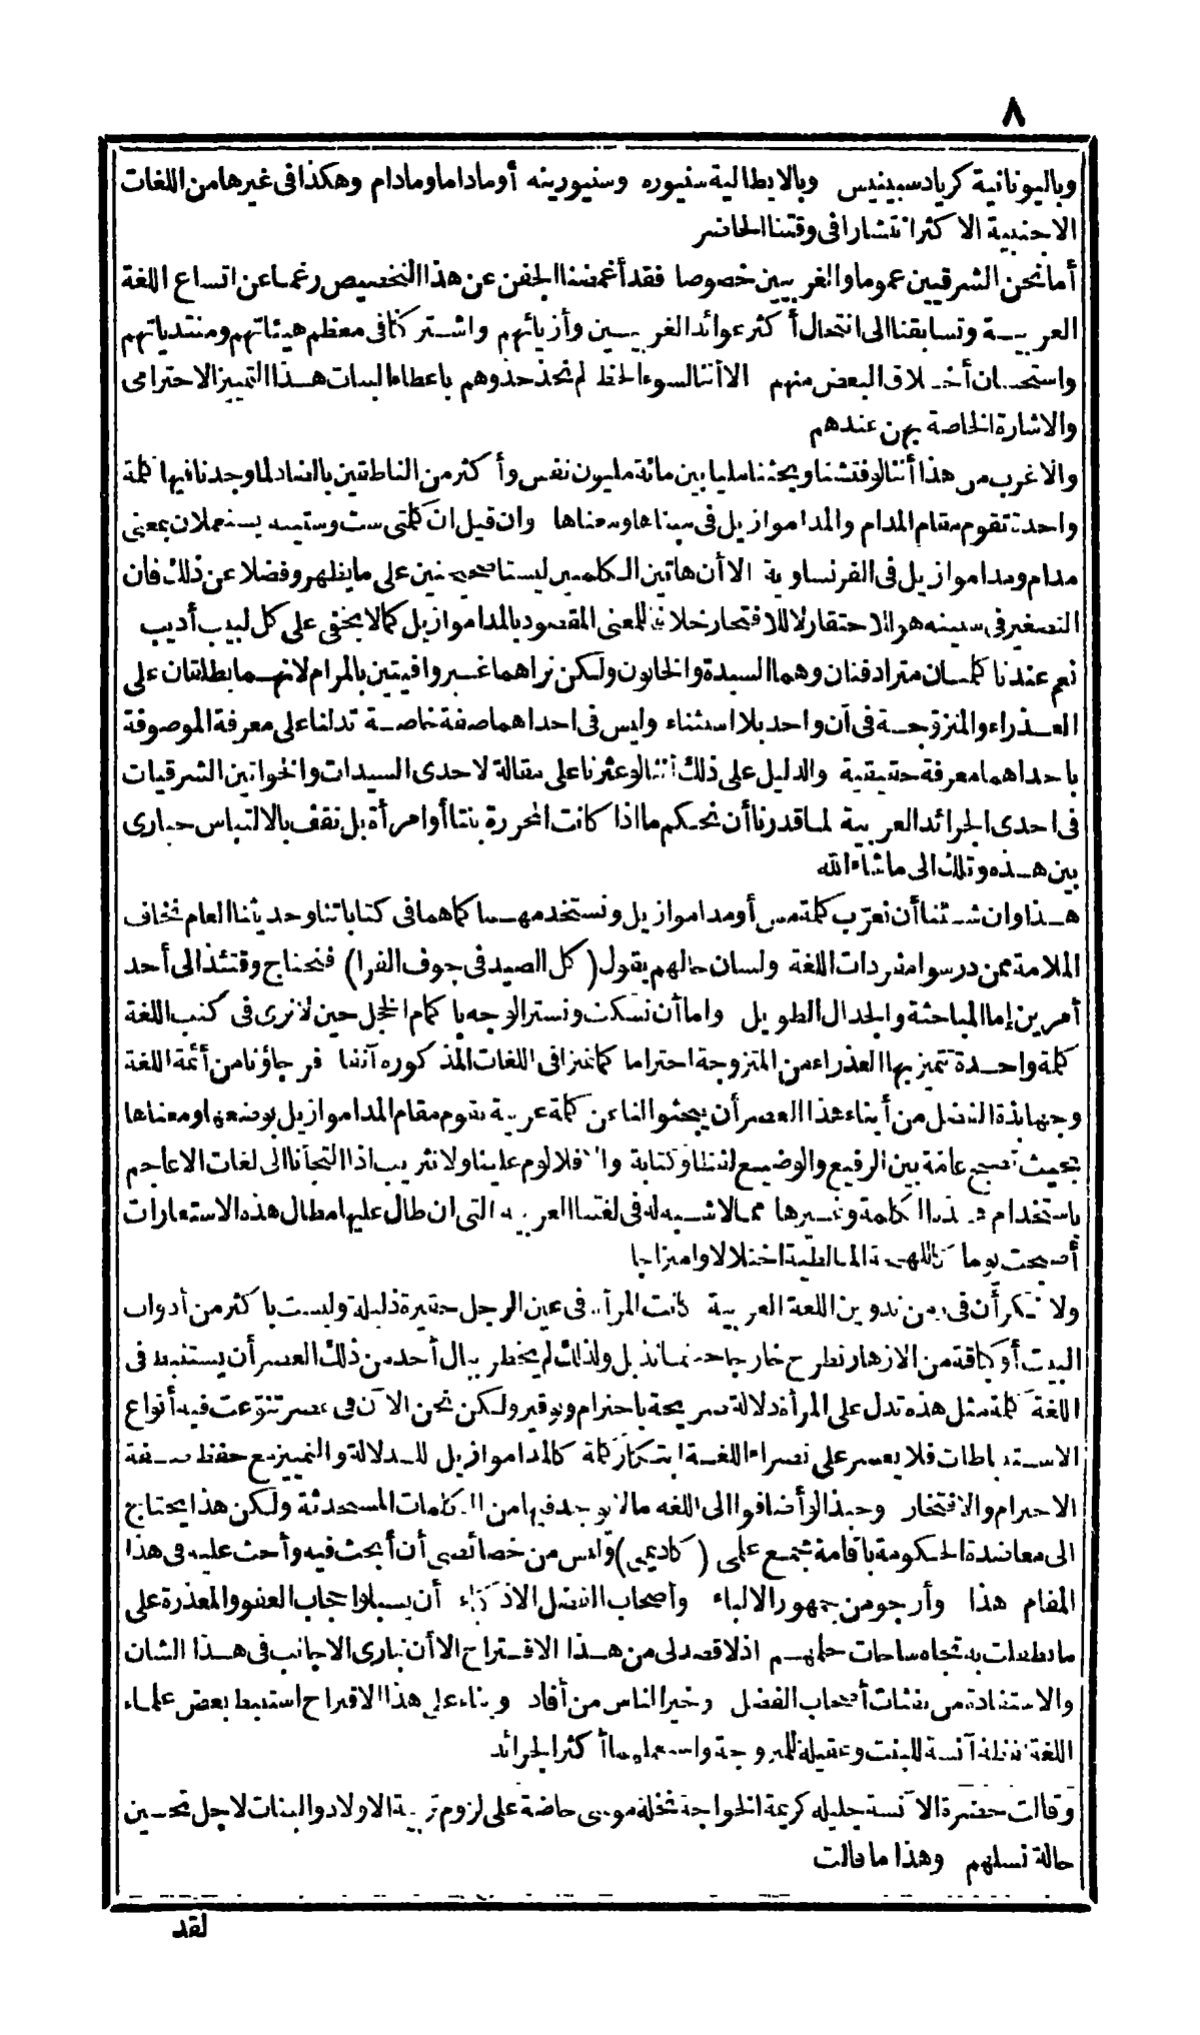 ٨
وباليونانية كرياد سبينيس وبالايطالية سنيوره وسنيورينه أوماداما ومادام وهكذا فى غيرها من اللغات
الاجنبية الاكثر انتشارا فى وقتنا الحاضر
أما نحن الشرقيين عموما والغربيين خصوصا فقد أغمضنا الجفن عن هذا التخصيص رغما عن اتساع اللغة
العربيـة وتسابقنا الى انتحال أكثر عوائد الغربيين وأزيائهم واشتركنا فى معظم هيئاتهم ومنتدياتهم
واستحسان أخلاق البعض منهم الا أننا لسوء الحظ لم نحذ حذوهم باعطاء البنات هذا التمييز الاحترامى
والاشارة الخاصة بهن عندهم
والاغرب من هذا أننا لو فتشنا وبحثنا مليا بين مائة مليون نفس وأكثر من الناطقين بالضاد لما وجدنا فيها كلمة
واحدة تقوم مقام المدام والمداموازيل فى مبناها ومعناها وان قيل ان كلمتى ست وستيته يستعملان بمعنى
مدام ومداموازيل فى الفرنساوية الا أن هاتين الكلمتين ليستا صحيحتين على ما يظهر وفضلا عن ذلك فان
التصغير فى ستيته هو للاحتقار لا للافتخار خلافا للمعنى المقصود بالمداموازيل كما لا يخفى على كل لبيب أديب
نعم عندنا كلمتان مترادفتان وهما السيدة والخاتون ولكن نراهما غير وافيتين بالمرام لانهما يطلقان على
العذراء والمتزوجة فى آن واحد بلا استثناء وليس فى احداهما صفة خاصة تدلنا على معرفة الموصوفة
باحداهما معرفة حقيقية والدليل على ذلك أننا لو عثرنا على مقالة لاحدى السيدات والخواتين الشرقيات
فى احدى الجرائد العربية لما قدرنا أن نحكم ما اذا كانت المحررة بنتا أو امرأة بل نقف بالالتباس حيارى
بين هذه وتلك الى ما شاء الله
هذا وان شئنا أن نعرّب كلمة مس أو مداموازيل ونستخدمهما كما هما فى كتاباتنا وحديثنا العام نخاف
الملامة ممن درسوا مفردات اللغة ولسان حالهم يقول (كل الصيد فى جوف الفرا) فنحتاج وقتئذ الى أحد
أمرين إما المباحثة والجدال الطويل واما أن نسكت ونستر الوجه باكمام الخجل حين لا نرى فى كتب اللغة
كلمة واحدة تتميز بها العذراء من المتزوجة احتراما كما تتميز فى اللغات المذكوره آنفا فرجاؤنا من أئمة اللغة
وجهابذة الفضل من أبناء هذا العصر أن يبحثوا لنا عن كلمة عربية تقوم مقام المداموازيل بوضعها ومعناها
بحيث تصبح عامّة بين الرفيع والوضيع لفظا وكتابة والا فلا لوم علينا ولا تثريب اذا التجأنا الى لغات الاعاجم
باستخدام هذه الكلمة وغيرها مما لا شبيه له فى لغتنا العربيه التى ان طال عليها مطال هذه الاستعارات
أصبحت يوما كاللهجة المالطية اختلالا وامتزاجا
ولا ننكر أن فى زمن تدوين اللغة العربية كانت المرأة فى عين الرجل حقيرة ذليلة وليست باكثر من أدوات
البيت أو كباقة من الازهار تطرح خارجا حينما تذبل ولذلك لم يخطر ببال أحد من ذلك العصر أن يستنبط فى
اللغة كلمة مثل هذه تدل على المرأة دلالة صريحة باحترام وتوقير ولكن نحن الآن فى عصر تنوّعت فيه أنواع
الاستنباطات فلا يعسر على نصراء اللغة ابتكار كلمة كالمداموازيل للدلالة والتمييز مع حفظ صفة
الاحترام والافتخار وحبذا لو أضافوا الى اللغه ما لا يوجد فيها من الكلمات المستحدثة ولكن هذا يحتاج
الى معاضدة الحكومة باقامة مجتمع علمى (كاديمى) وليس من خصائصى أن أبحث فيه وأحث عليه فى هذا
المقام هذا وأرجو من جمهور الالباء وأصحاب الفضل الاذكياء أن يسبلوا حجاب العفو والمعذرة على
ما تطفلت به تجاه ساحات حلمهم اذ لا قصد لى من هذا الاقتراح الا أن نبارى الاجانب فى هذا الشان
والاستفادة من نفثات أصحاب الفضل وخير الناس من أفاد وبناء على هذا الاقتراح استنبط بعض علماء
اللغة لفظة آنسة للبنت وعقيلة للمتزوجة واستعملهما أكثر الجرائد
وقالت حضرة الآنسة جليله كريمة الخواجه نخله موسى حاضة على لزوم تربية الاولاد والبنات لاجل تحسين
حالة نسلهم وهذا ما قالت
لقد